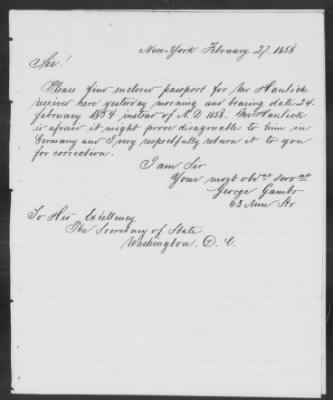 New-York February 27 1858
Sir!
Please find enclosed passport for Mr Hantick
received here yesterday morning and bearing date 24.
February 1854 instead of A. D 1858. Mr Hantick
is afraid it might prove disagreable to him in
Germany and I very respectfully return it to you
for correction.
I am Sir
Your most obdt servant
George Gambs
63 Ann Str
To His Excellency
The Secretary of State
Washington. D. C.